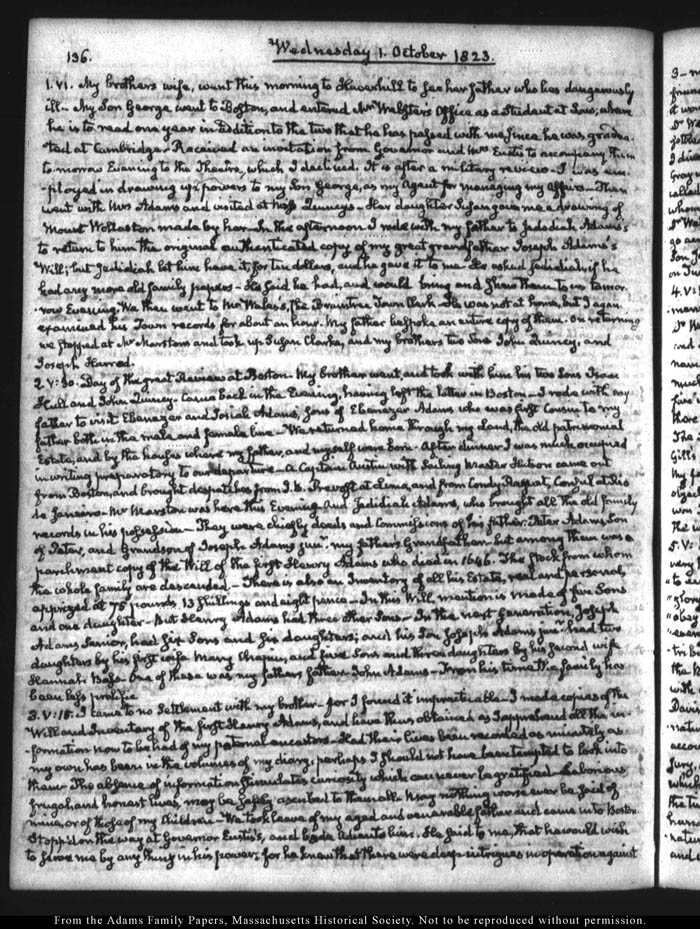 136.
Wednesday 1. October 1823.
1. VI. My brothers wife, went this morning to Haverhill to see her father who lies dangerously
ill — My Son George went to Boston, and entered Mr Websters Office as a student at Law; where
he is to read one year in addition to the two that he has passed with me since he was gradua-
ted at Cambridge — Received an invitation from Governor and Mrs Eustis to accompany them
to-morrow Evening to the Theatre, which I declined. It is after a military review — I was em-
-ployed in drawing up powers to my Son George, as my Agent for managing my affairs — Then
went with Mrs Adams and visited at Mrs Quincy's — Her daughter Susan gave me a drawing of
Mount Wollaston made by her — In the afternoon I rode with my father to Jedediah Adams's
to return to him the original authenticated copy of my great grandfather Joseph Adams's
Will; but Jedidiah let him have it for ten dollars, and he gave it to me — He asked Jedidiah if he
had any more old family papers — He said he had, and would bring and shew them to us tomor-
row Evening. We then went to Mr Wales's, the Braintree Town Clerk — He was not at home, but I again
examined his Town records for about an hour. My father bespoke an entire copy of them. On returning
we stopped at Mr Marstons and took up Susan Clarke, and my brothers two Sons John Quincy, and
Joseph Harrod.
2. V:30. Day of the great Review at Boston. My brother went, and took with him his two Sons Isaac
Hull and John Quincy. Came back in the Evening, having left the latter in Boston — I rode with my
father to visit Ebenezer and Josiah Adams, Sons of Ebenezer Adams who was first Cousin to my
father both in the male and female line — We returned home through my land, the old patrimonial
Estate, and by the houses where my father, and myself were born — After dinner I was much occupied
in writing preparatory to our departure — A Captain Austin with Sailing Master Stetson came out
from Boston, and brought despatches from J. B. Prevost at Lima, and from Condy Raguet, Consul at Rio
de Janeiro — Mr Marston was here this Evening And Jedidiah Adams, who brought all the old family
records in his possession — They were chiefly deeds and Commissions of his father, Peter Adams, Son
of Peter, and Grandson of Joseph Adams junr. my fathers Grandfather. but among them was a
parchment copy of the Will of the first Henry Adams who died in 1646. The stock from whom
the whole family are descended — There is also an Inventory of all his Estate, real and personal,
apprized at 75 pounds, 13 shillings and eight pence — In this Will, mention is made of five Sons
and one daughter — But Henry Adams had three other Sons — In the next Generation, Joseph
Adams Senior, had six Sons and six daughters; and his Son Joseph Adams junr. had two
daughters by his first wife Mary Chapin, and five Sons and three daughters by his second wife
Hannah Bass. One of these was my fathers father John Adams — From his time the family has
been less prolific
3. V:15. I came to no Settlement with my brother — for I found it impracticable — I made copies of the
Will and Inventory of the first Henry Adams, and have thus obtained as I apprehend all the in-
-formation now to be had of my paternal ancestors — Had their lives been recorded as minutely as
my own has been in the volumes of my diary, perhaps I should not have been tempted to look into
them — The absence of information stimulates curiosity which can never be gratified — Laborious,
frugal and honest lives, may be safely ascribed to them all. May nothing worse ever be said of
mine, or of those of my Children — We took leave of my aged and venerable father and came into Boston
Stopp'd on the way at Governor Eustis's, and bade Adieu to him. He said to me, that he would wish
to serve me by any thing in his power; for he knew that there were deep intrigues in operation against
From the Adams Family Papers, Massachusetts Historical Society. Not to be reproduced without permission.